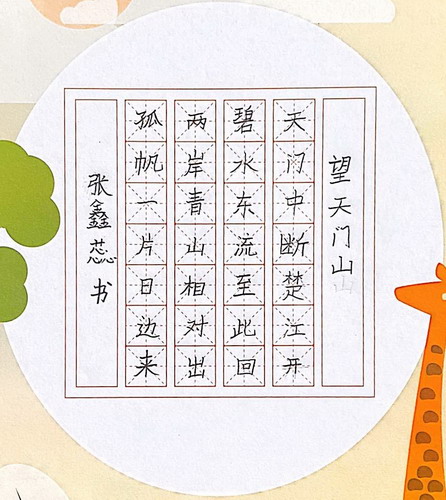 望天门山
天门中断楚江开
碧水东流至此回
两岸青山相对出
孤帆一片日边来
张鑫蕊书